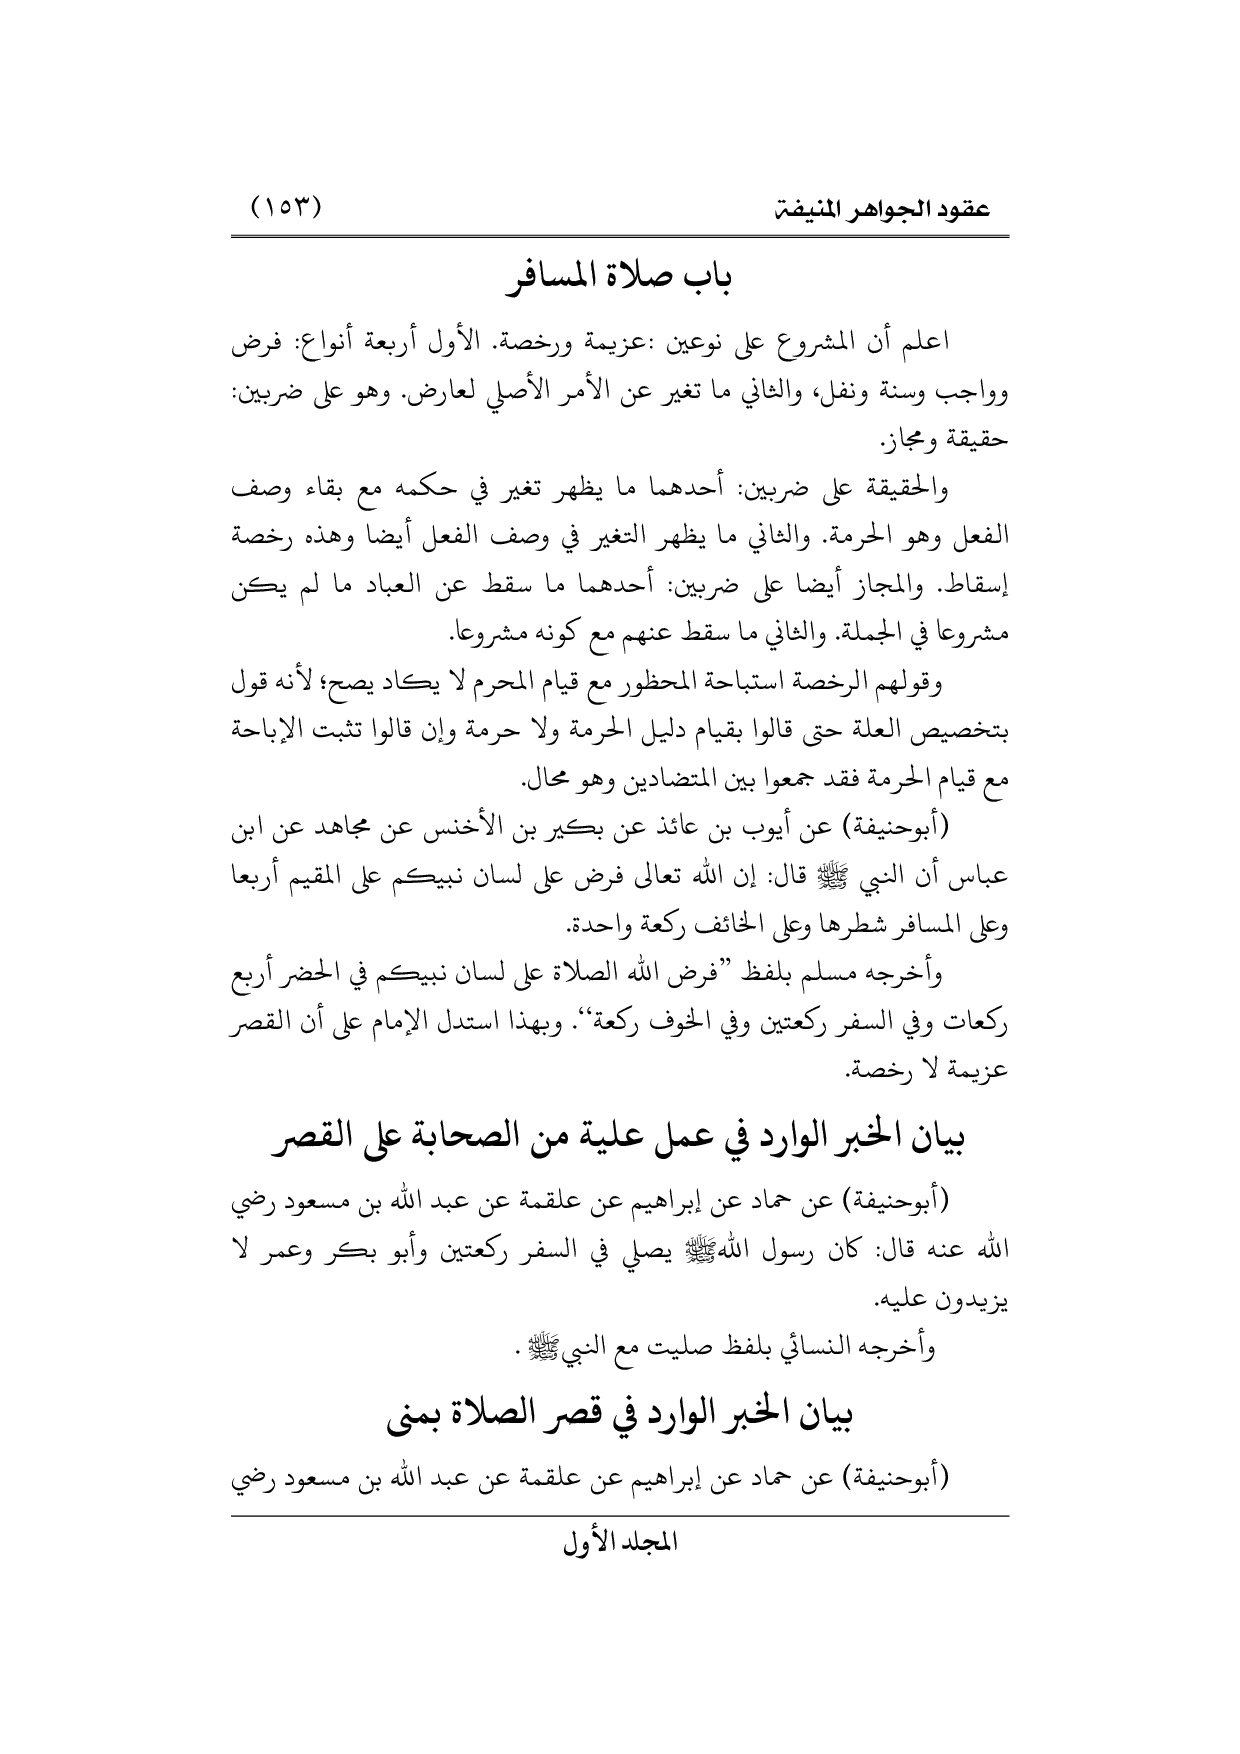 عقود الجواهر المنيفة (١٥٣)
باب صلاة المسافر
اعلم أن المشروع على نوعين :عزيمة ورخصة. الأول أربعة أنواع: فرض
وواجب وسنة ونفل، والثاني ما تغير عن الأمر الأصلي لعارض. وهو على ضربين:
حقيقة ومجاز.
والحقيقة على ضربين: أحدهما ما يظهر تغير في حكمه مع بقاء وصف
الفعل وهو الحرمة. والثاني ما يظهر التغير في وصف الفعل أيضا وهذه رخصة
إسقاط. والمجاز أيضا على ضربين: أحدهما ما سقط عن العباد ما لم يكن
مشروعا في الجملة. والثاني ما سقط عنهم مع كونه مشروعا.
وقولهم الرخصة استباحة المحظور مع قيام المحرم لا يكاد يصح؛ لأنه قول
بتخصيص العلة حتى قالوا بقيام دليل الحرمة ولا حرمة وإن قالوا تثبت الإباحة
مع قيام الحرمة فقد جمعوا بين المتضادين وهو محال.
(أبوحنيفة) عن أيوب بن عائذ عن بكير بن الأخنس عن مجاهد عن ابن
عباس أن النبي ﷺ قال: إن الله تعالى فرض على لسان نبيكم على المقيم أربعا
وعلى المسافر شطرها وعلى الخائف ركعة واحدة.
وأخرجه مسلم بلفظ ”فرض الله الصلاة على لسان نبيكم في الحضر أربع
ركعات وفي السفر ركعتين وفي الخوف ركعة‘‘. وبهذا استدل الإمام على أن القصر
عزيمة لا رخصة.
بيان الخبر الوارد في عمل علية من الصحابة على القصر
(أبوحنيفة) عن حماد عن إبراهيم عن علقمة عن عبد الله بن مسعود رضي
الله عنه قال: كان رسول اللهﷺ يصلي في السفر ركعتين وأبو بكر وعمر لا
يزيدون عليه.
وأخرجه النسائي بلفظ صليت مع النبيﷺ .
بيان الخبر الوارد في قصر الصلاة بمنى
(أبوحنيفة) عن حماد عن إبراهيم عن علقمة عن عبد الله بن مسعود رضي
المجلد الأول